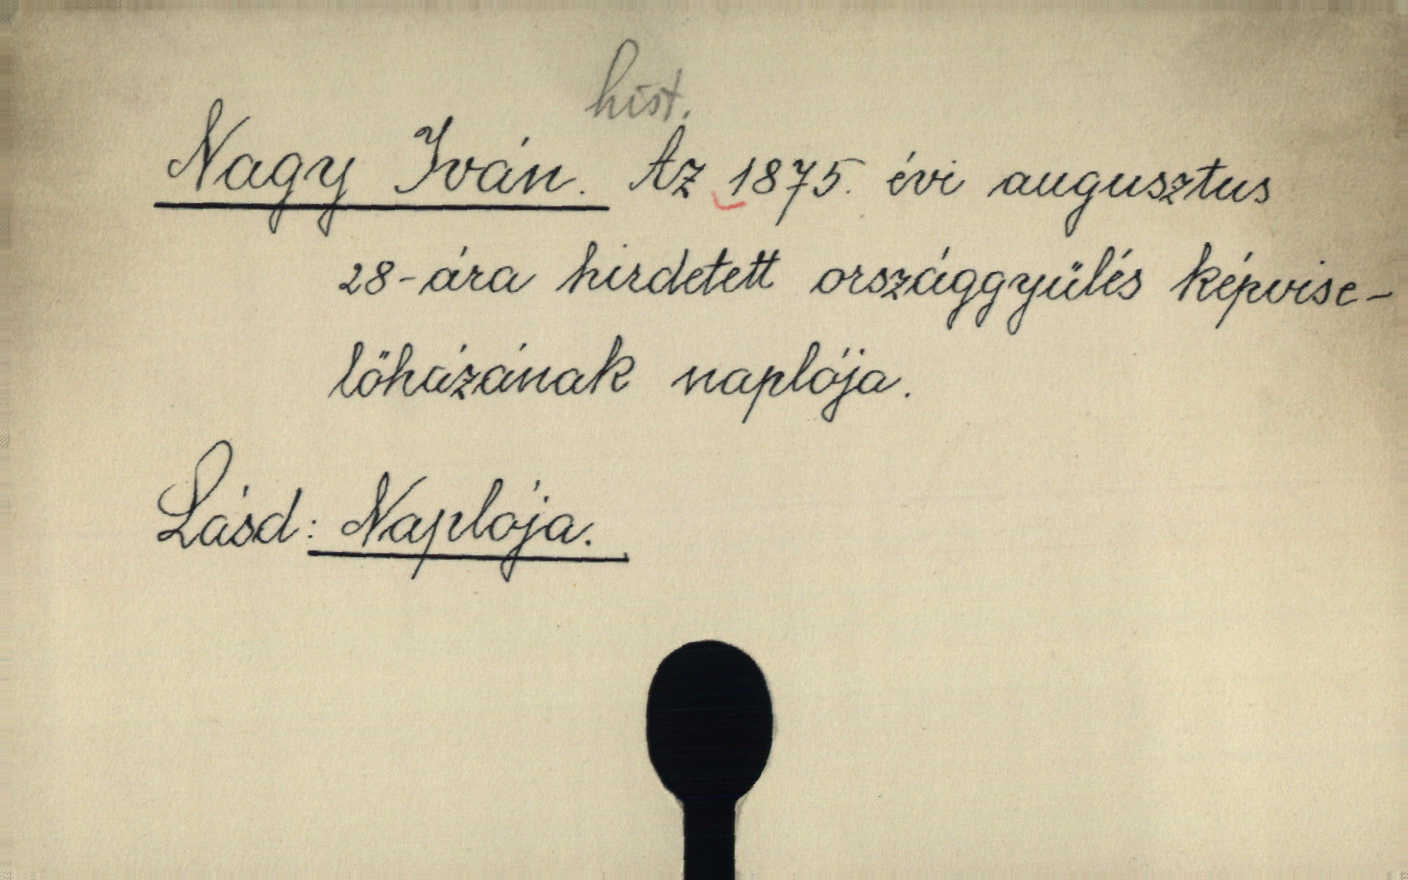 hist.
Nagy Iván. Az 1875. évi augusztus
28-ára hirdetett országgyülés képvise-
lőházának naplója.
Lásd: Naplója.